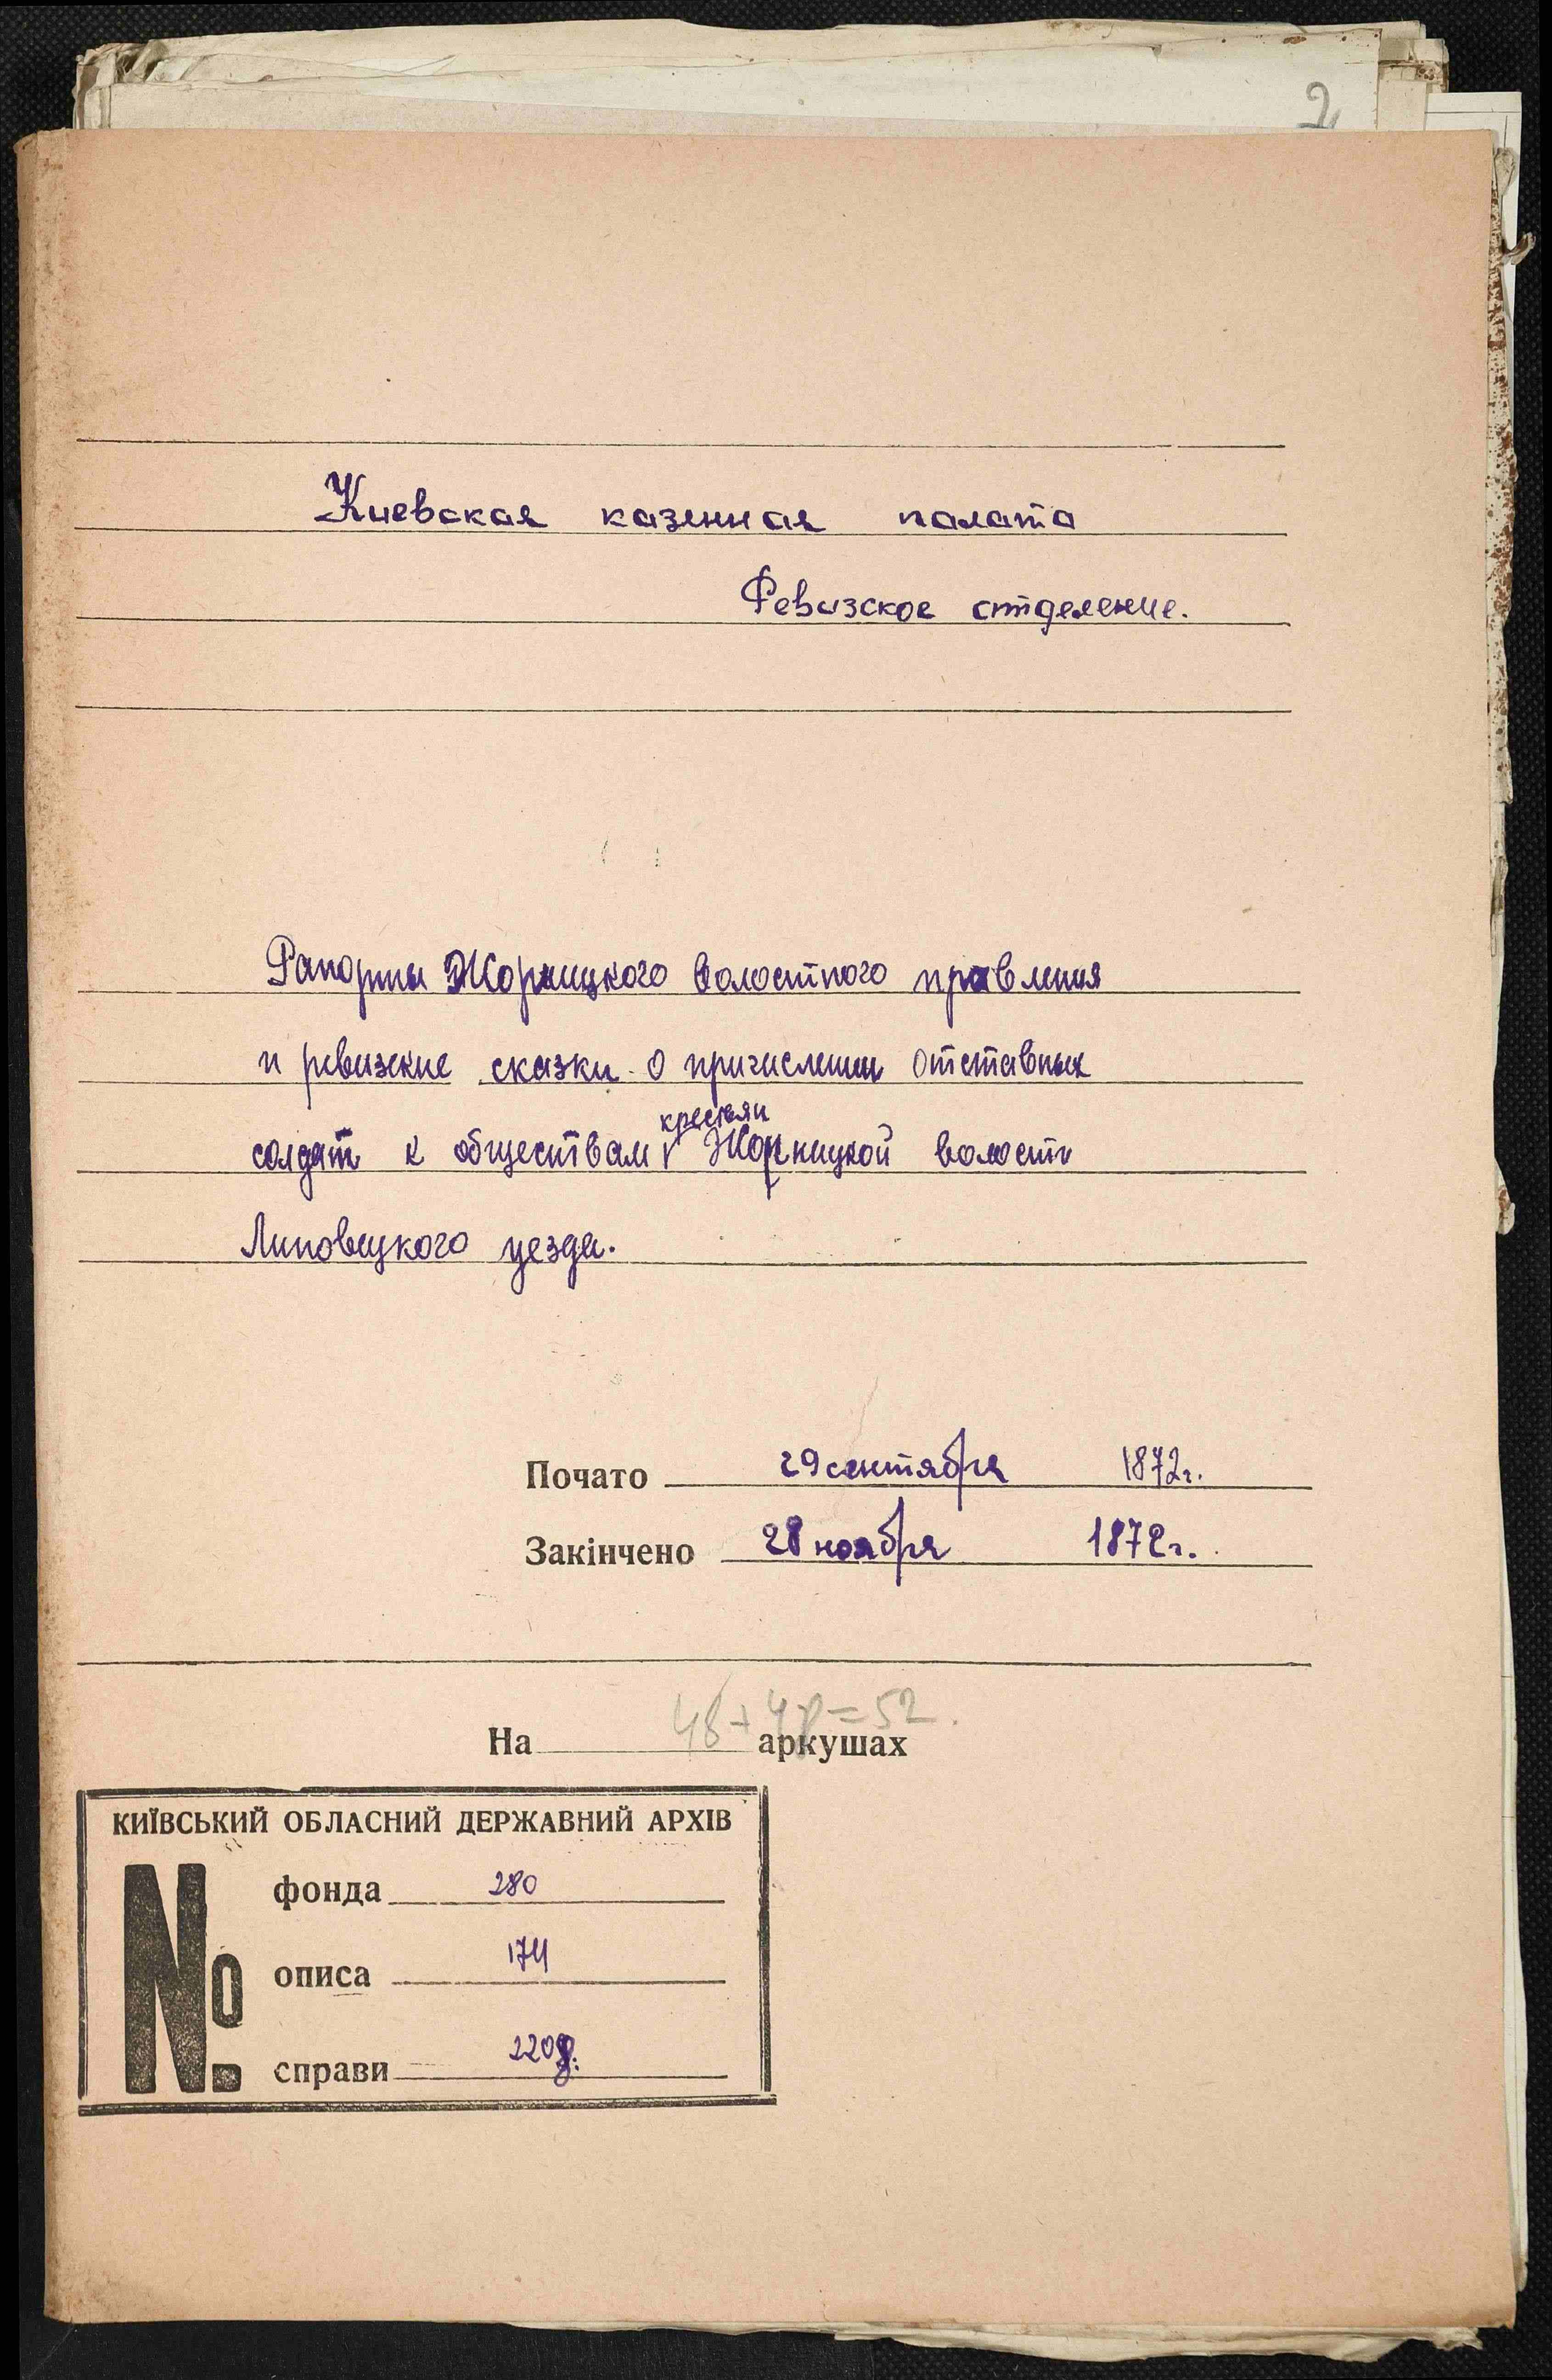 2
Киевская казенная палата
Ревизское отделение.
Рапорты Жорницкого волостного правления
и ревизские сказки о причислении отставных
крестьян
солдат к обществам V Жорницкой волости
Липовецкого уезда.
Почато 29 сентября 1872г.
Закінчено 28 ноября 1872г.
На 48+4р=52. аркушах
КИЇВСЬКИЙ ОБЛАСНИЙ ДЕРЖАВНИЙ АРХІВ
№
фонда 280
описа 174
справи